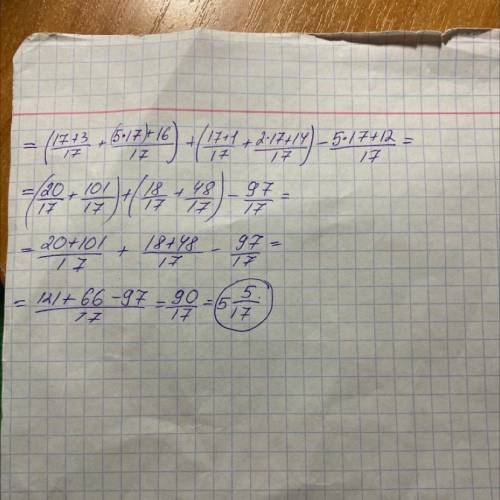 = (17+3/17 + (5·17)+16/17) + (17+1/17 + 2·17+14/17) - 5·17+12/17 =
= (20/17 + 101/17) + (18/17 + 48/17) - 97/17 =
= 20+101/17 + 18+48/17 - 97/17 =
= 121+66-97/17 = 90/17 = 5 5/17